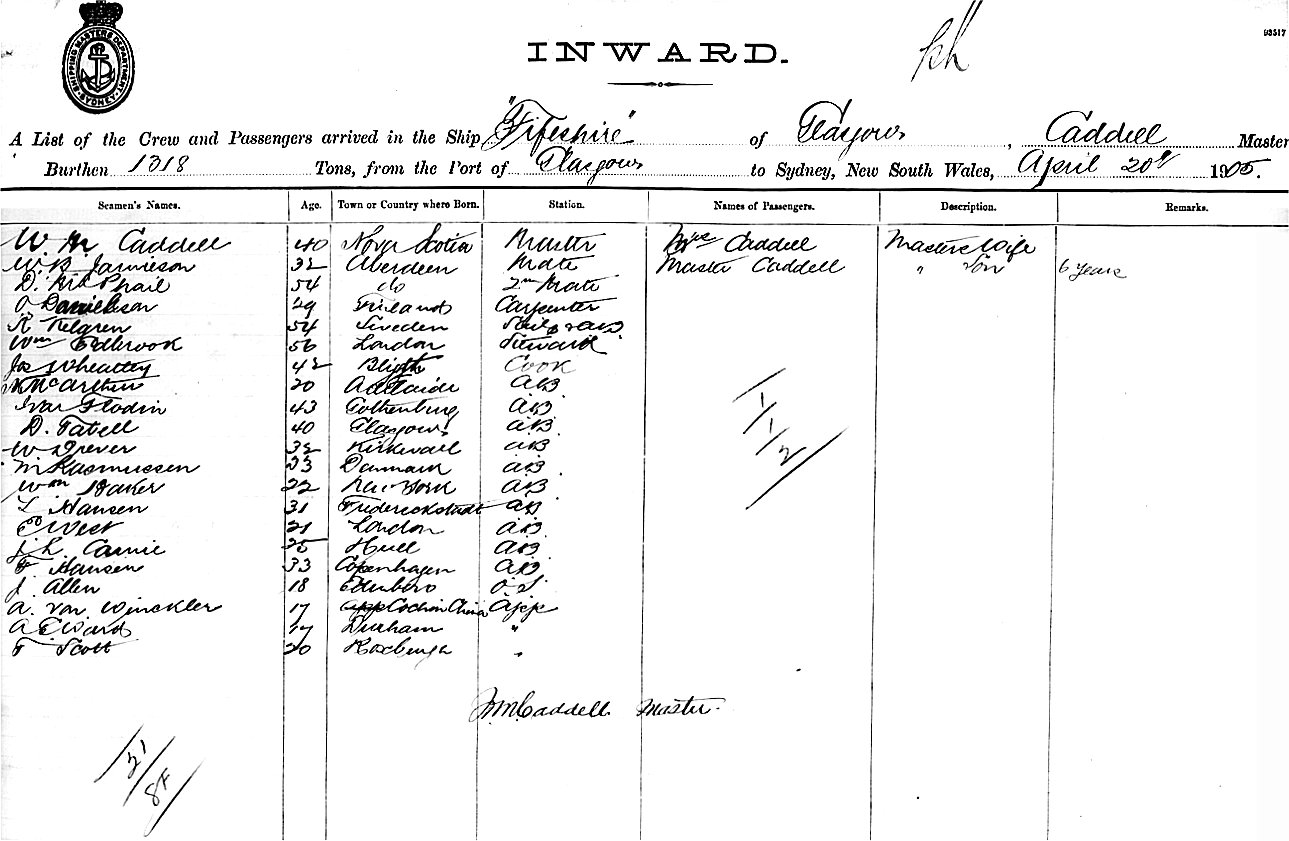 SHIPPING MASTERS DEPARTMENT SYDNEY
93517
INWARD.
A List of the Crew and Passengers arrived in the Ship "Fifeshire" of Glasgow, Caddell Master
Burthen 1318 Tons, from the Port of Glasgow to Sydney, New South Wales, April 20th 1905.
Seamen's Names. Age. Town or Country where Born. Station. Names of Passengers. Description. Remarks.
W M Caddell 40 Nova Scotia Master Mrs Caddell Masters Wife
W.B. Jamieson 32 Aberdeen Mate Master Caddell " Son 6 years
D. McPhail 54 do 2nd Mate
O Danielson 29 Finland Carpenter
K Kelgren 54 Sweden Sail & AB
Wm Edbrook 56 London Steward
Jos Wheatley 42 Blyth Cook
McArthur 20 Adelaide AB
Ivar Flodin 43 Gothenburg AB
D. Tatell 40 Glasgow AB
W Drever 32 Kirkwall AB
M Rasmussen 33 Danmark AB
Wm Baker 22 New York AB
L Hansen 31 Frederickstadt AB
E West 21 London AB
J. L. Carrie 25 Hull AB
F Hansen 33 Copenhagen AB
J. Allen 18 Edinboro O.S
A. von Winckler 17 Cochin China App
A E Ward 17 Durham "
F Scott 20 Roxburgh "
WmCaddell Master
1/1/2
21/8F